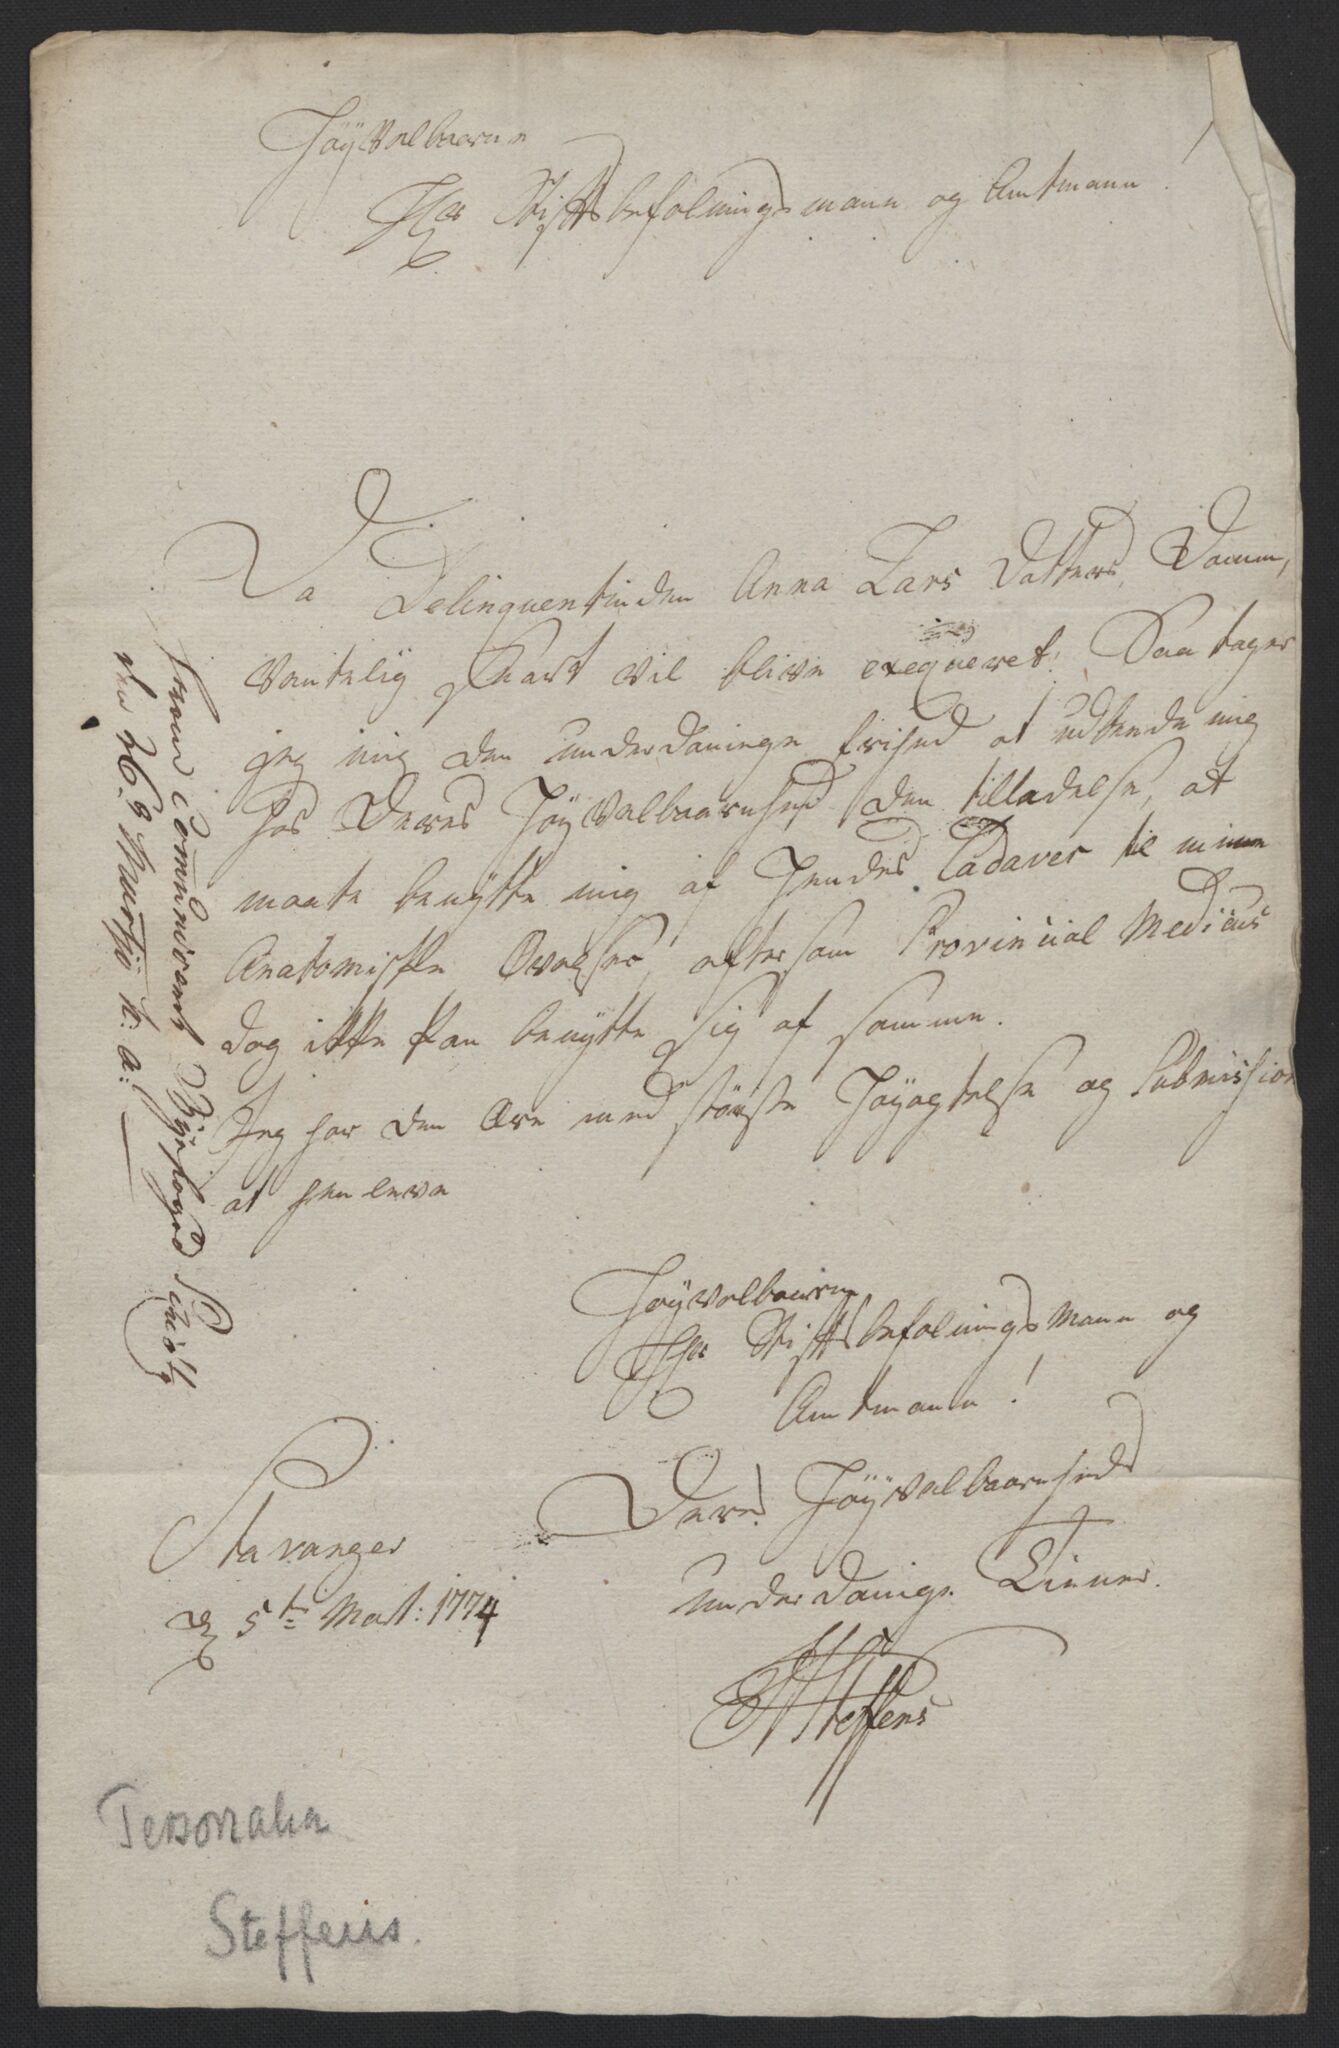 Høyvelbaarne
Hr Stiftsbefalningsmann og Amtmann!
Da Delinquentinden Anna Lars Datters Dom,
ventelig snart vil blive exeqveret! Saa tager
jeg mig den underdanige frihed at udbede mig
hos Deres Høyvelbaarenhed den tilladelse, at
maate benytte mig af hendes Cadaver til min
Anatomiske Øvelser, eftersom Provincial Medicus
dog ikke kan benytte sig af samme.
Jeg har den Ære med største Høyagtelse og Submission
at henleve
Høyvelbaarne
Hr Stiftsbefalningsmann og
Amtmann!
Deres Høyvelbaarenheds
underdanige Tiener.
Steffens
Stavanger
d 5te Mart: 1774
communicert Byefoged
den 26 Martji h: a:
Personalia
Steffens.